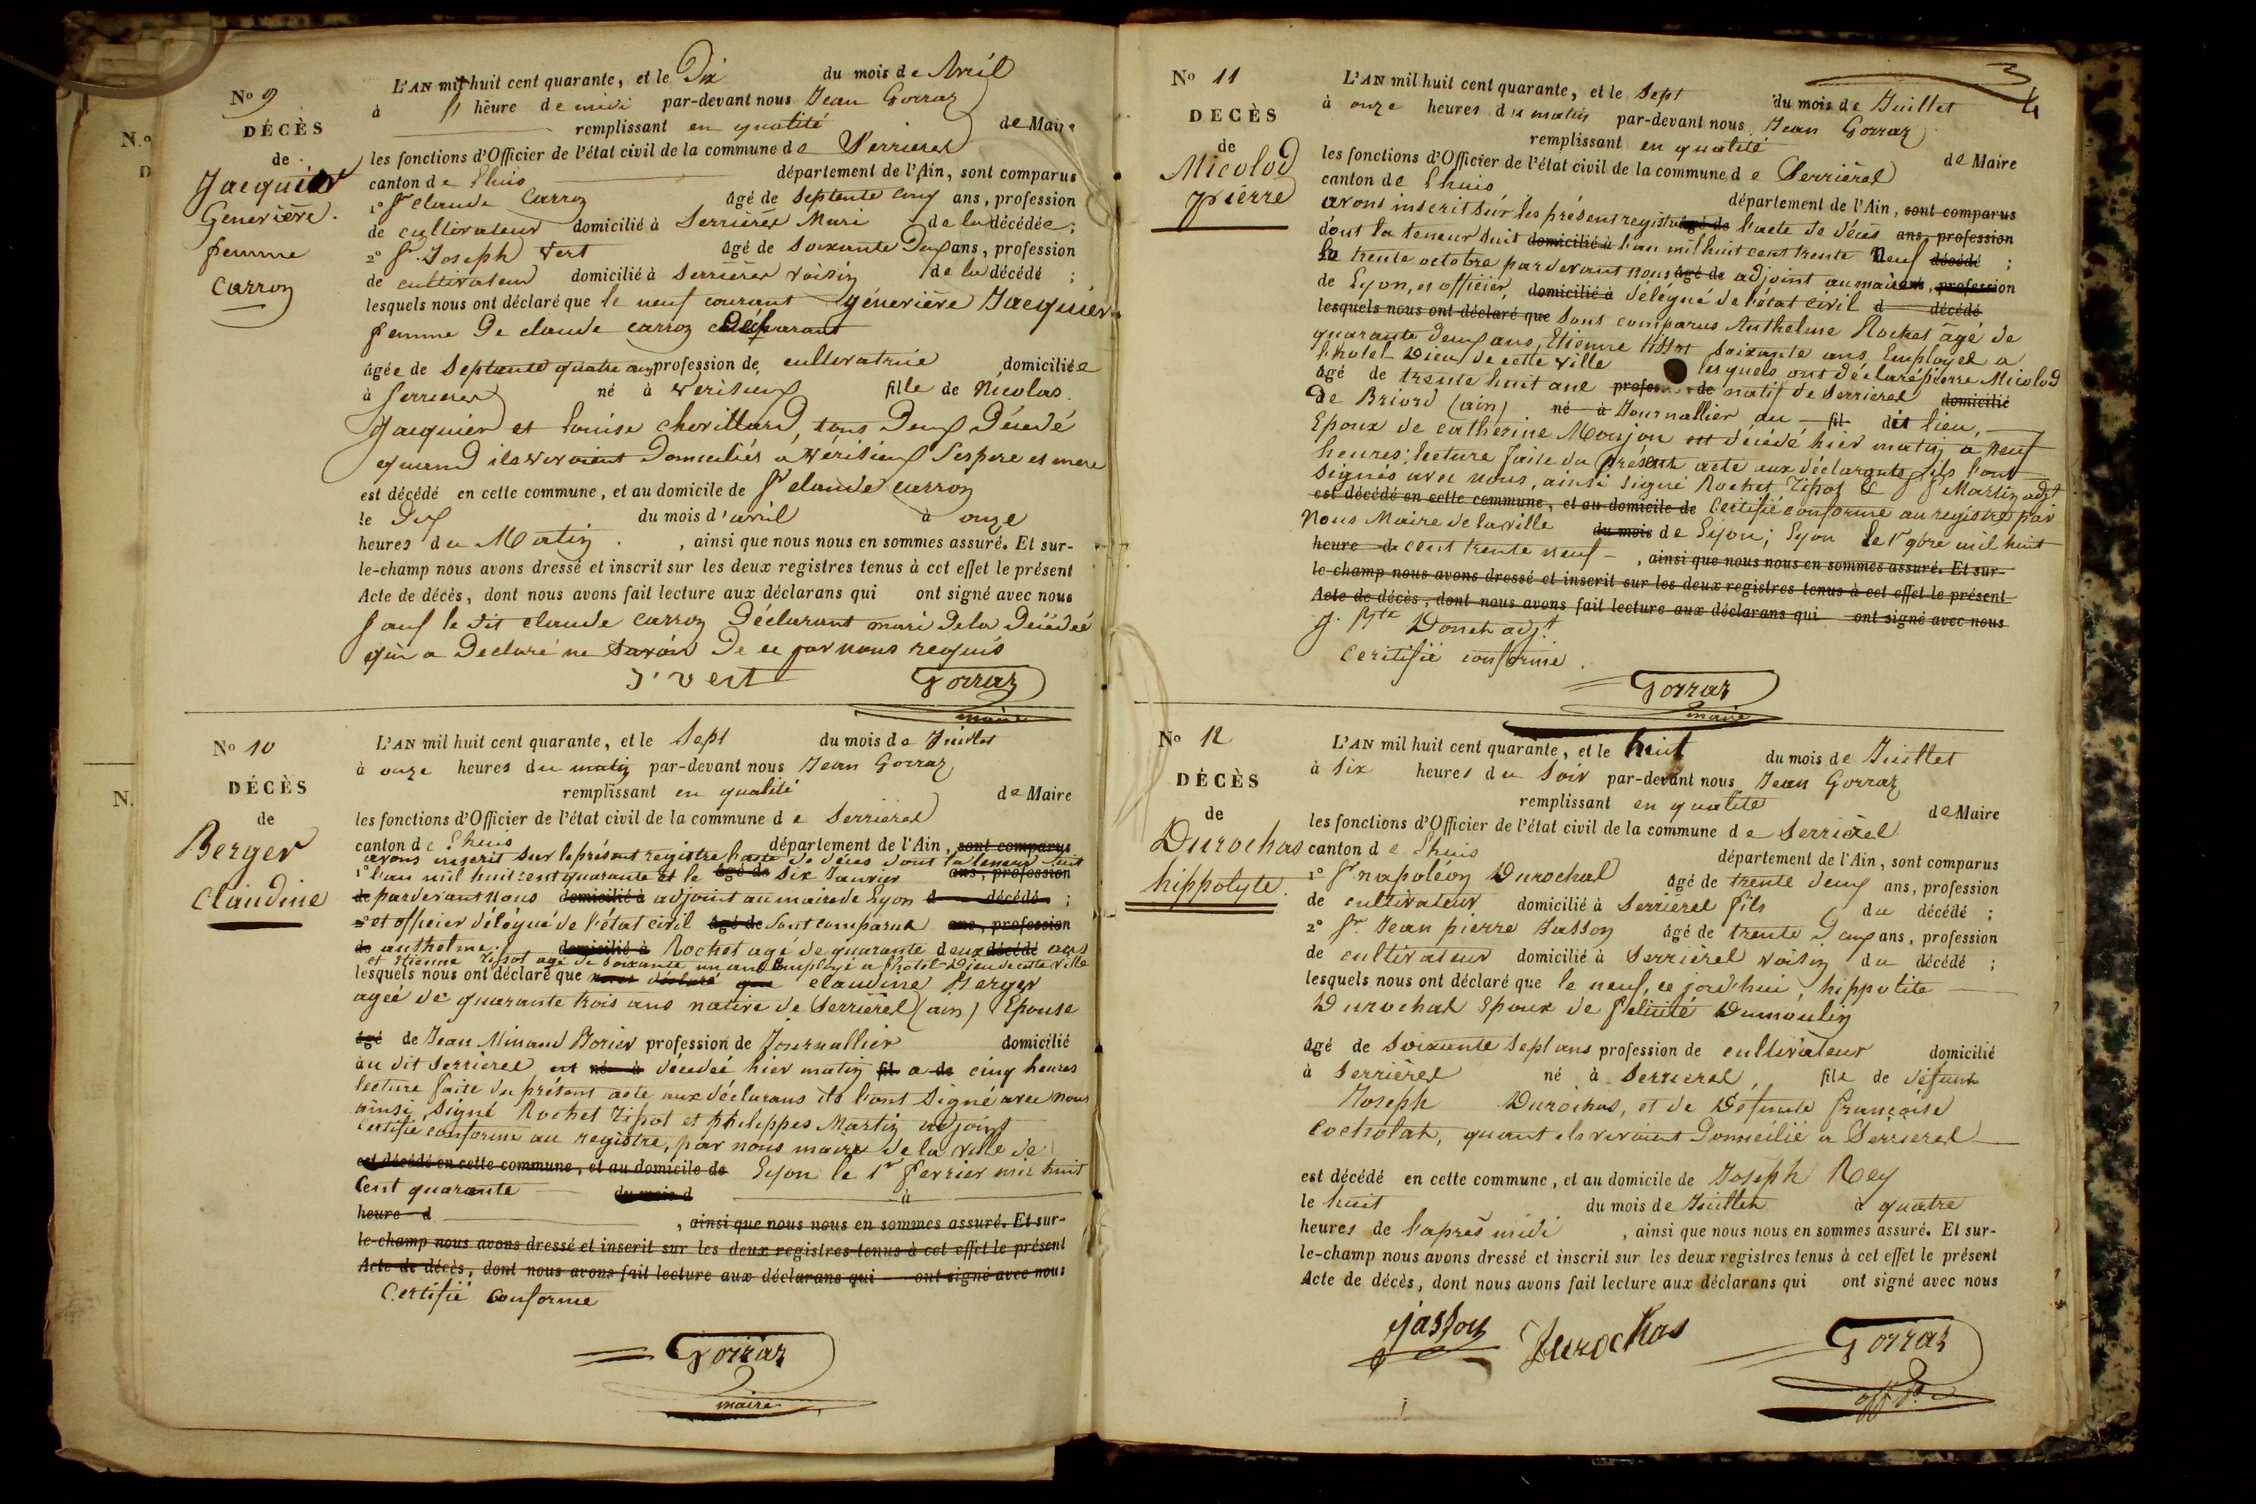 N° 9
DÉCÈS
de
Jacquier
Genevière.
femme
Carroz
L'AN mil huit cent quarante, et le Dix du mois de Avril
à heure de midi par-devant nous Jean Gorraz
remplissant en qualité de Maire
les fonctions d'Officier de l'état civil de la commune de Serrieres
canton de Lhuis département de l'Ain, sont comparus
1° Sr Claude Carroz âgé de septente cinq ans, profession
de cultivateur domicilié à Serrieres Mari de la décédée;
2° Sr Joseph Vert âgé de soixante Deux ans, profession
de cultivateur domicilié à Serrieres voisin de la décédé ;
lesquels nous ont déclaré que le neuf courant génevière Jacquier
femme De claude carroz
âgée de Septante quatre ans profession de cultivatrice domiciliée
à Serrieres né à Verisieux fille de Nicolas
Jacquier et Louise Chevillard, tous Deux Décedé
quand ils vivoient Domiciliés a vérisieux Ses pere et mere
est décédé en cette commune, et au domicile de Sr claude carroz
le Dix du mois d'avril à onze
heures du Matin , ainsi que nous nous en sommes assuré. Et sur-
le-champ nous avons dressé et inscrit sur les deux registres tenus à cet effet le présent
Acte de décès, dont nous avons fait lecture aux déclarans qui ont signé avec nous
sauf le dit claude carroz Déclarant mari De la Décédée
qui a Declaré ne Savoir De ce par nous requis
J. Vert Gorraz
maire
N° 10
DÉCÈS
de
Berger
Claudine
L'AN mil huit cent quarante, et le Sept du mois de Juillet
à onze heures du matin par-devant nous Jean Gorraz
remplissant en qualité de Maire
les fonctions d'Officier de l'état civil de la commune de Serrieres
canton de Lhuis département de l'Ain, sont comparus
avons inscrit sur le présent registre l'acte de déces dont la teneur suit
1° l'an mil huit cent quarante et le âgé de six Janvier ans, profession
de pardevant nous domicilié à adjoint au maire de Lyon d décédé ;
2° et officier délégué de l'état civil âgé de sont comparus ans, profession
de anthelme domicilié à Rochet agé de quarante deux décédé ans
et Etienne Tissot agé de soixante un ans Employé a l'hotel-Dieu de cette ville
lesquels nous ont déclaré que claudine Berger
ageé de quarante trois ans native de Serrieres (ain) Epouse
âgé de Jean Minand Borier profession de Journallier domicilié
au dit Serrieres est né à décedée hier matin fil a de cinq heures
lecture faite du présent acte aux déclarans ils l'ont signé avec nous
ainsi signé Rochet Tissot et philippes Martin adjoint
certifié conforme au registre, par nous maire de la ville de
est décédé en cette commune, et au domicile de Lyon le 1er fevrier mil huit
Cent quarante du mois d à
heure d , ainsi que nous nous en sommes assuré. Et sur-
le-champ nous avons dressé et inscrit sur les deux registres tenus à cet effet le présent
Acte de décès, dont nous avons fait lecture aux déclarans qui ont signé avec nous
Certifié conforme
Gorraz
maire
N° 11
DÉCÈS
de
Micolod
pierre
L'AN mil huit cent quarante, et le Sept du mois de Juillet
à onze heures du matin par-devant nous Jean Gorraz
remplissant en qualité de Maire
les fonctions d'Officier de l'état civil de la commune de Serrieres
canton de Lhuis département de l'Ain, sont comparus
avons inscrit sur les présent registre âgé de l'acte de déces ans, profession
dont la teneur suit domicilié à l'an mil huit cent trente neuf décédé ;
le trente octobre pardevant nous âgé de adjoint au maire ans, profession
de Lyon, et officier domicilié à délégué de l'état civil d décédé
lesquels nous ont déclaré que sont comparus Anthelme Rochet âgé de
quarante deux ans, Etienne Tissot soixante ans Employés a
l'hotel-Dieu de cette ville lesquels ont déclaré pierre Micolod
âgé de trente huit ans profes de natif de Serrieres domicilié
de Briord (ain) né à Journallier au fil dit lieu,
Epoux de catherine Moujon est décédé hier matin a neuf
heures; lecture faite du présent acte aux déclarants ils l'ont
signés avec nous, ainsi signé Rochet Tissot & Martin adjt
est décédé en cette commune, et au domicile de Certifié conforme au registre par
Nous Maire de la ville du mois de Lyon; Lyon le 1er 9bre mil huit
heure de cent trente neuf , ainsi que nous nous en sommes assuré. Et sur-
le-champ nous avons dressé et inscrit sur les deux registres tenus à cet effet le présent
Acte de décès, dont nous avons fait lecture aux déclarans qui ont signé avec nous
adjt
certifié conforme
Gorraz
maire
N° 12
DÉCÈS
de
Durochas
hippolyte.
L'AN mil huit cent quarante, et le huit du mois de Juillet
à six heures du soir par-devant nous Jean Gorraz
remplissant en qualité de Maire
les fonctions d'Officier de l'état civil de la commune de Serrieres
canton de Lhuis département de l'Ain, sont comparus
1° Sr napoléon Durochat âgé de trente deux ans, profession
de cultivateur domicilié à Serrieres fils du décédé ;
2° Sr Jean pierre Jasson âgé de trente Deux ans, profession
de cultivateur domicilié à Serrieres voisin du décédé ;
lesquels nous ont déclaré que le neuf, ce jord'hui, hippolite
Durochat Epoux de félicité Dumoulin
âgé de soixante sept ans profession de cultivateur domicilié
à Serrieres né à Serrieres, fils de défunt
Joseph Durochas, et de Défunte françoise
Cocholat, quant ils vivoient Domicilié a Serrieres
est décédé en cette commune, et au domicile de Joseph Rey
le huit du mois de Juillet à quatre
heures de l'apres midi , ainsi que nous nous en sommes assuré. Et sur-
le-champ nous avons dressé et inscrit sur les deux registres tenus à cet effet le présent
Acte de décès, dont nous avons fait lecture aux déclarans qui ont signé avec nous
jasson Durochas Gorraz